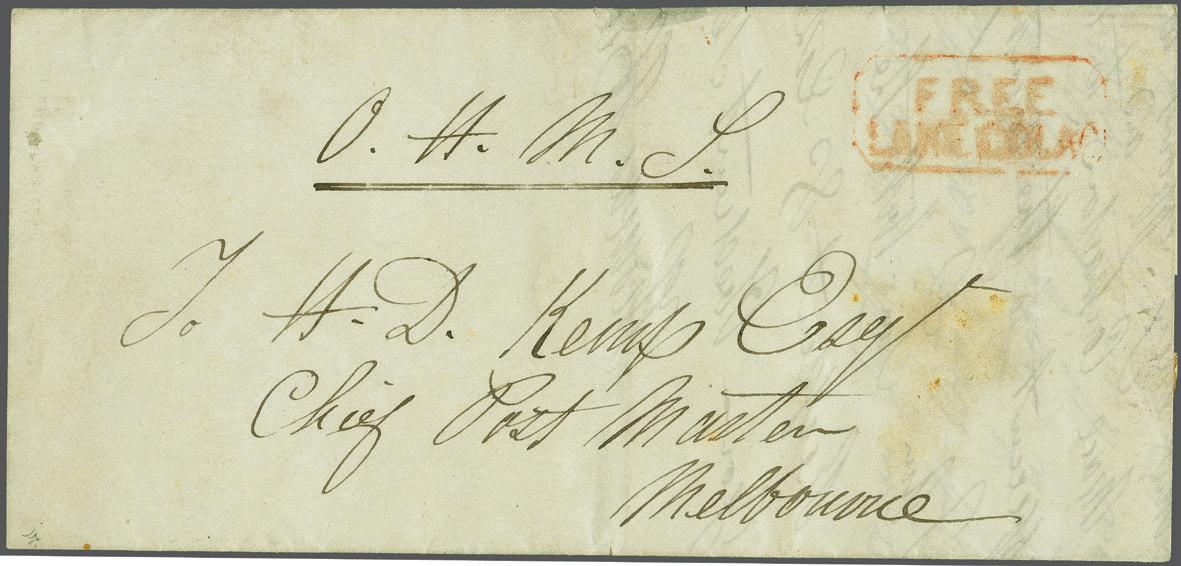 O. H. M. S.
FREE
LAKE COLAC
To H. D. Kemp Esqr
Chief Post Master
Melbourne